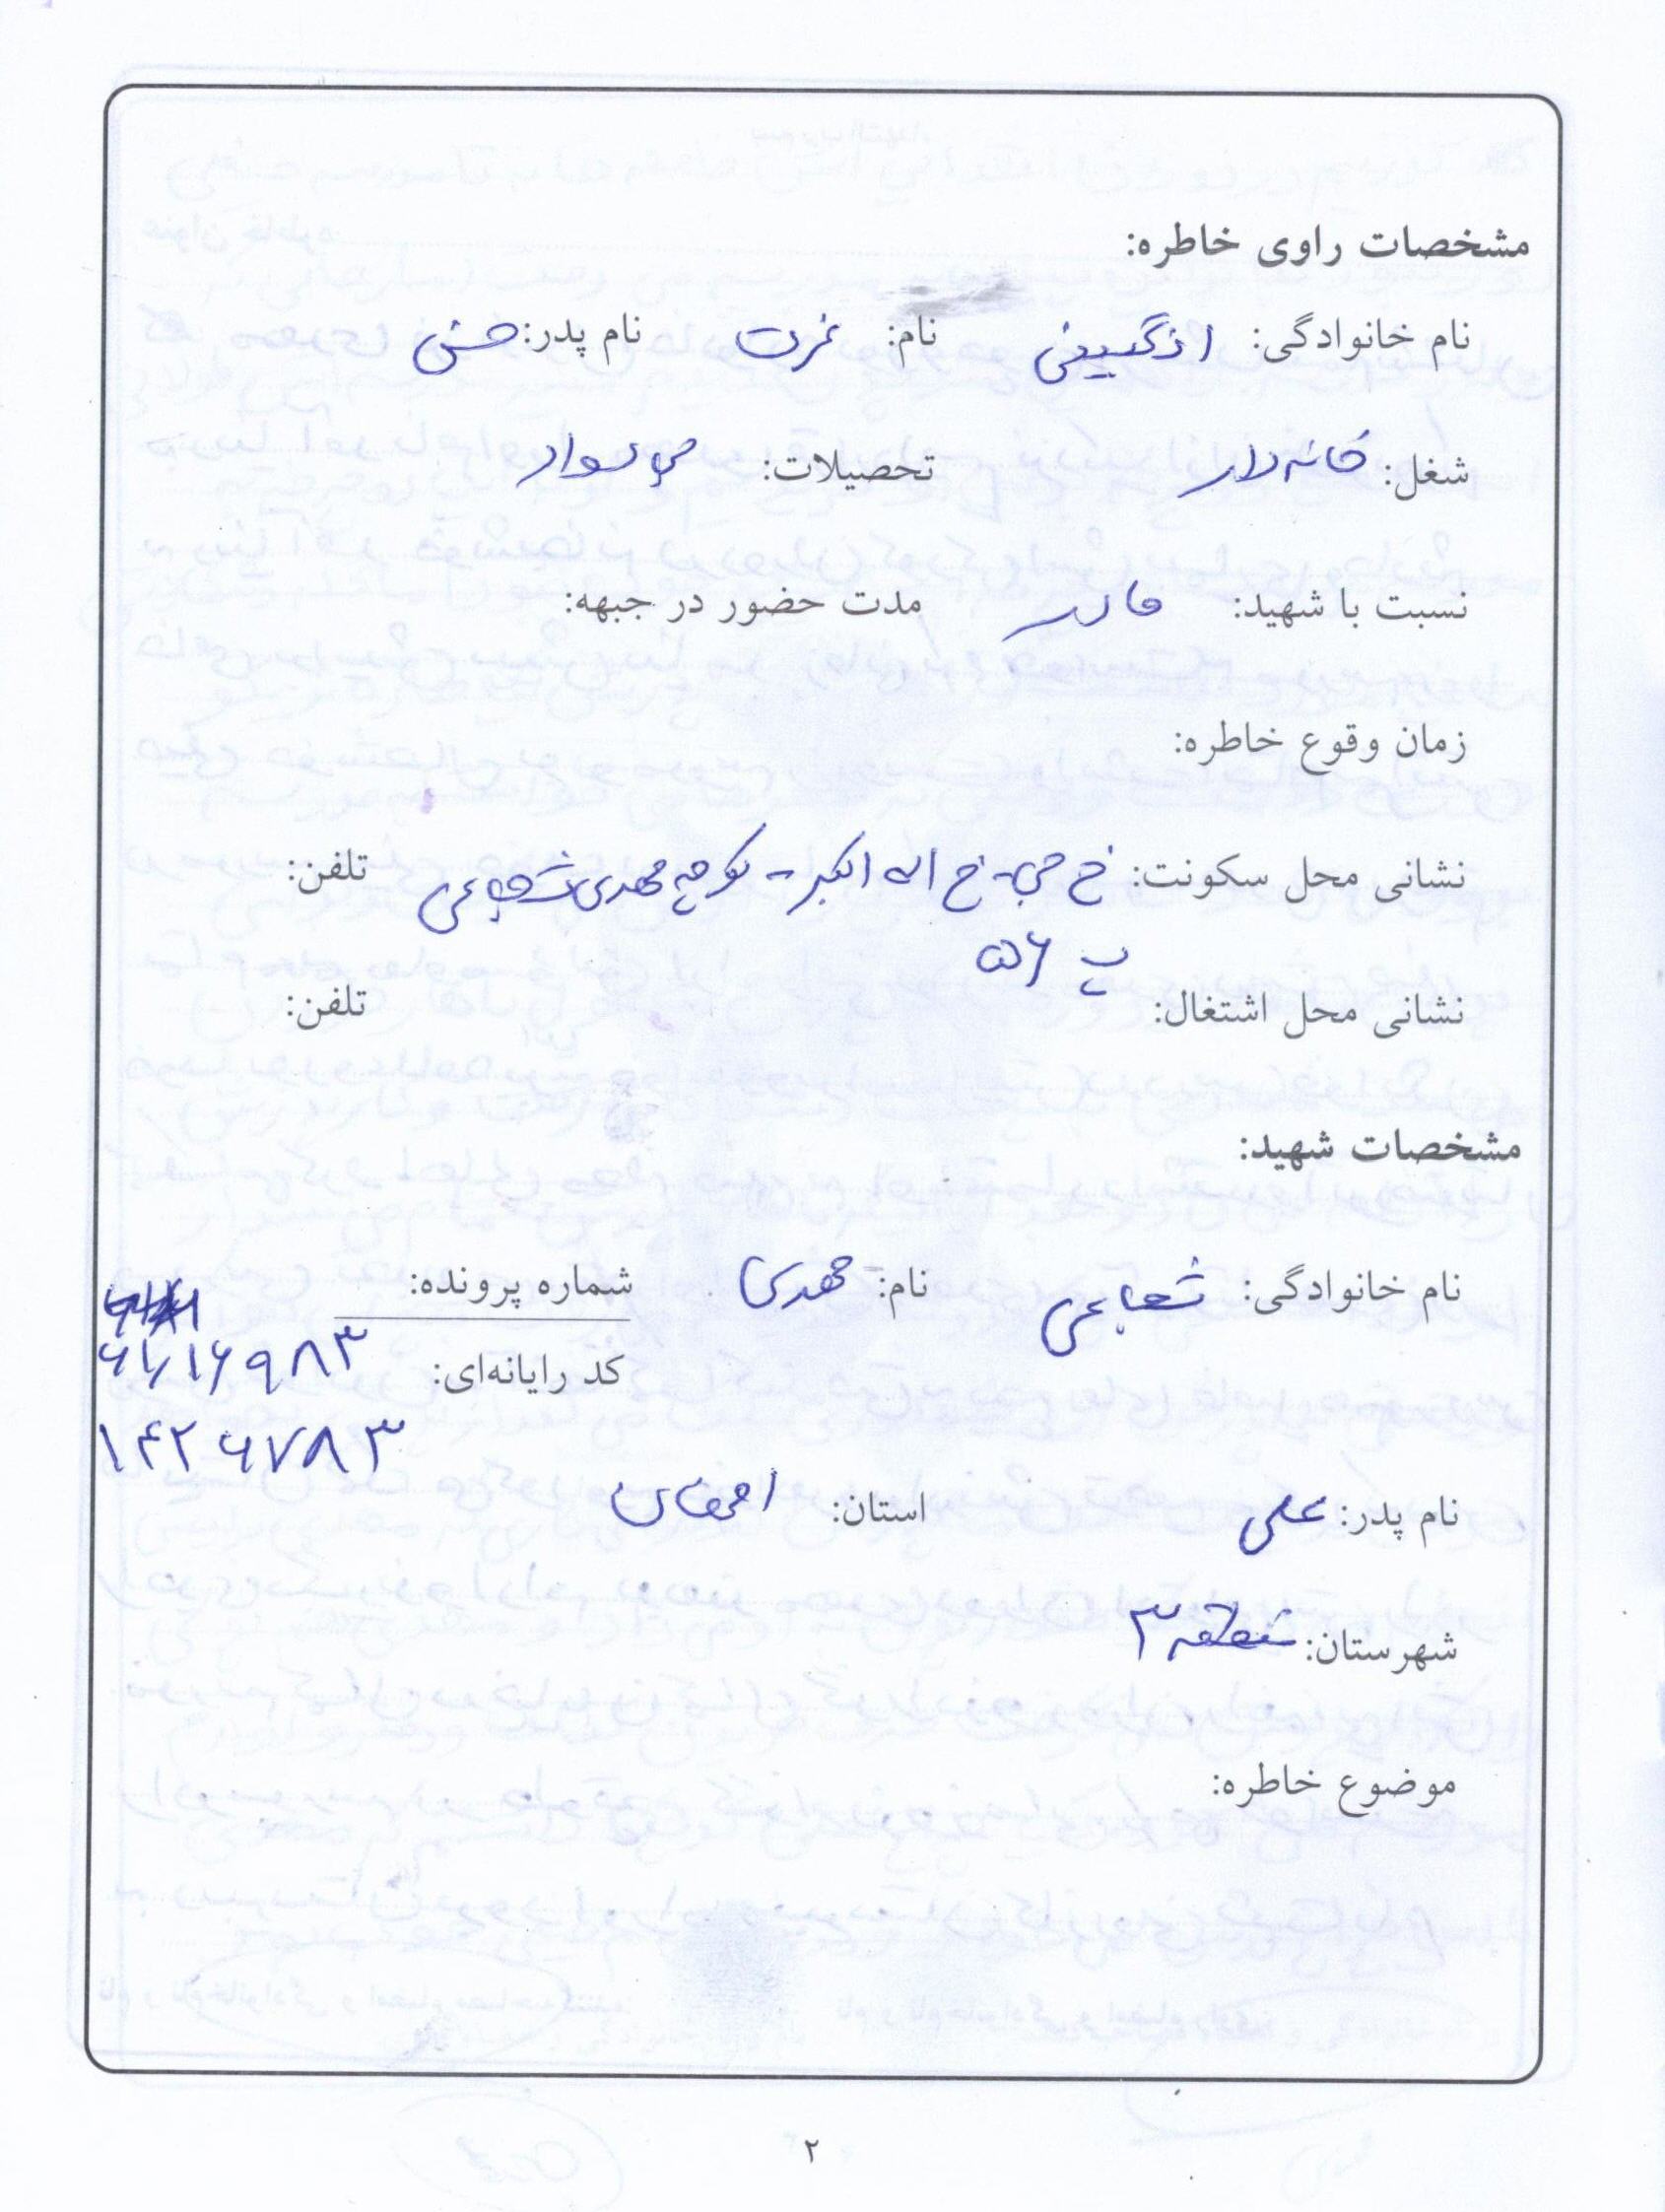 مشخصات راوی خاطره:
نام خانوادگی: انگبینی نام: عزت نام پدر:
شغل: خانه دار تحصیلات: بی سواد
نسبت با شهید: مادر مدت حضور در جبهه:
زمان وقوع خاطره:
نشانی محل سکونت: خ جی - خ اله اکبر - کوچه مهدی شجاعی تلفن:
پ ۵۶
نشانی محل اشتغال: تلفن:
مشخصات شهید:
نام خانوادگی: شجاعی نام: مهدی شماره پرونده:
کد رایانه‌ای: ۶۱/۱۶۹۸۳
۱۴۲۶۷۸۳
نام پدر: علی استان: اصفهان
شهرستان: منطقه ۳
موضوع خاطره:
۲